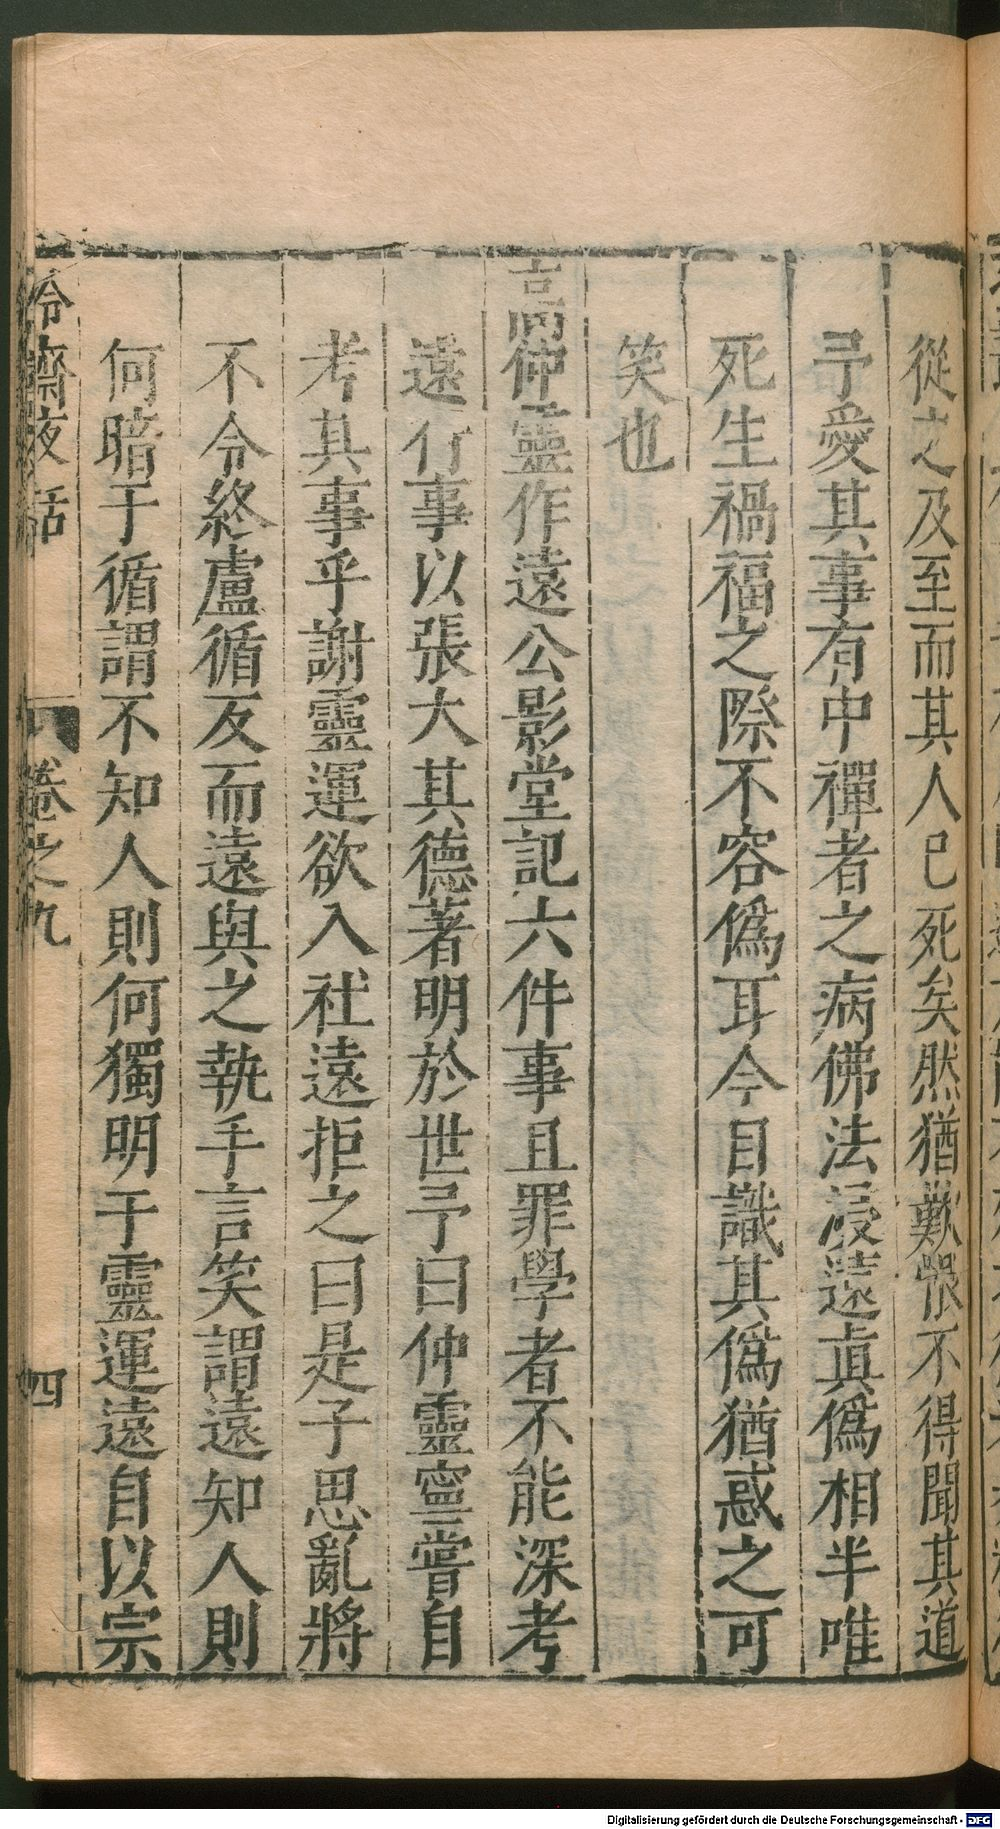 從之及至而其人已死矣然猶歎恨不得聞其道
予愛其事有中禪者之病佛法浸遠真偽相半唯
死生禍福之際不容偽耳今目識其偽猶惑之可
笑也
高仲靈作遠公影堂記六件事且罪學者不能深考
遠行事以張大其德著明於世予曰仲靈寧嘗自
考其事乎謝靈運欲入社遠拒之曰是子思亂將
不令終盧循反而遠與之執手言笑謂遠知人則
何暗于循謂不知人則何獨明于靈運遠自以宗
冷齋夜話 卷之九 四
Digitalisierung gefördert durch die Deutsche Forschungsgemeinschaft - DFG